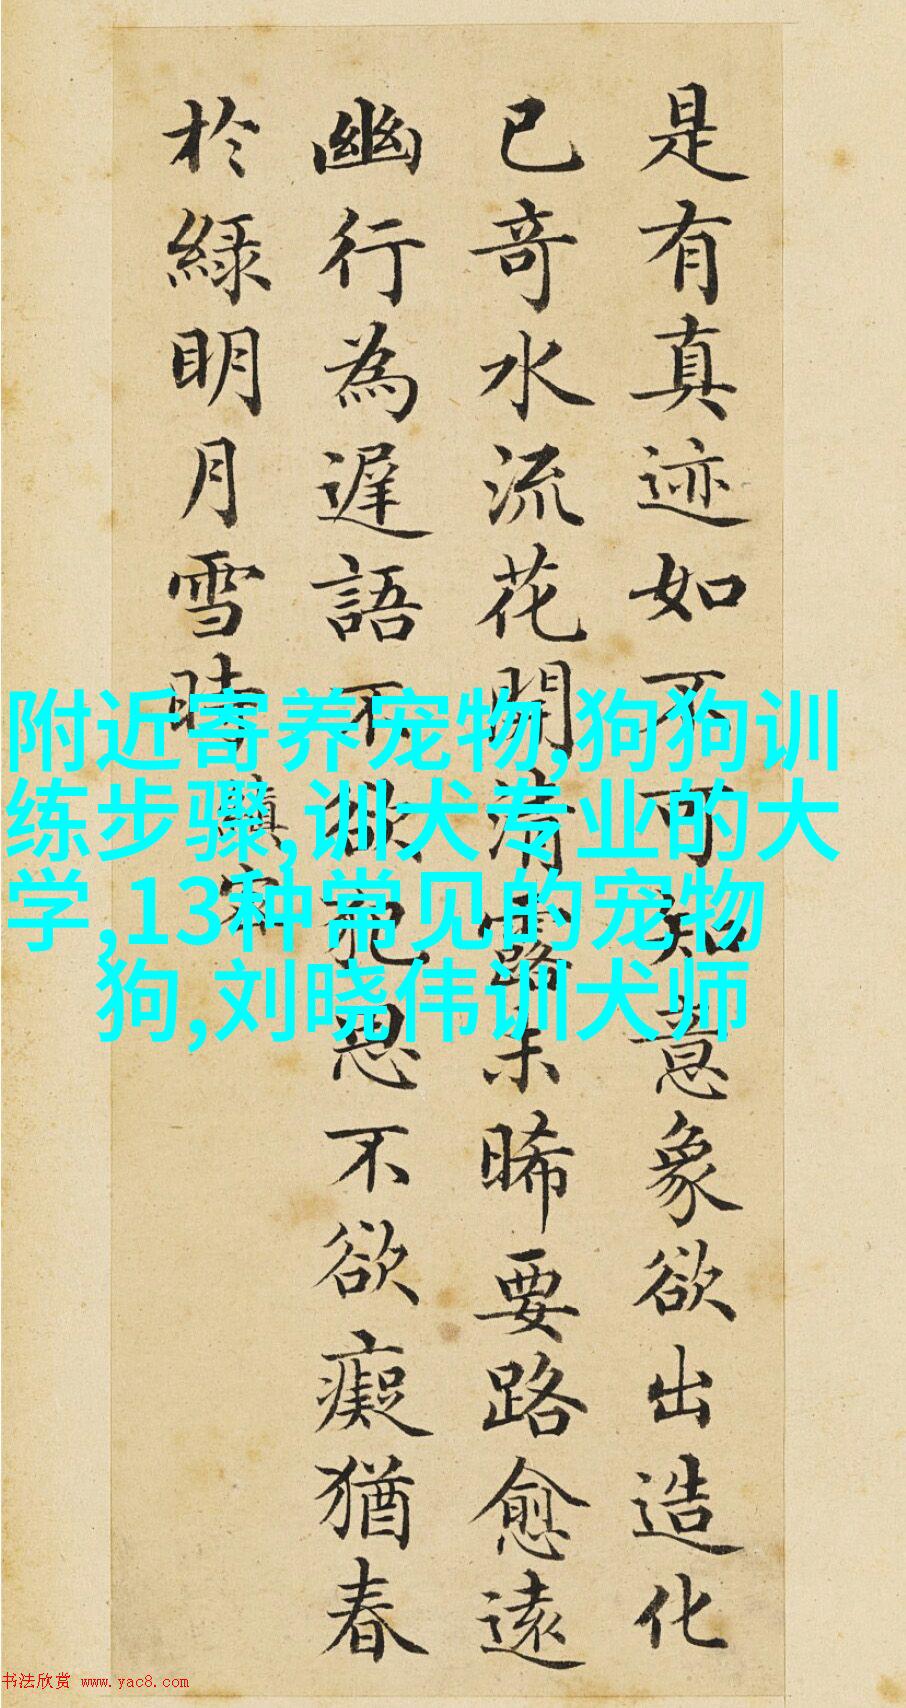 是有真迹如不可知意象欲出造化
已奇水流花開清露未晞要路愈遠
幽行為遲語不欲犯思不欲癡猶春
於綠明月雪時
附近寄养宠物,狗狗训
练步骤,训犬专业的大
学,13种常见的宠物
狗,刘晓伟训犬师
书法欣赏 www.yac8.com